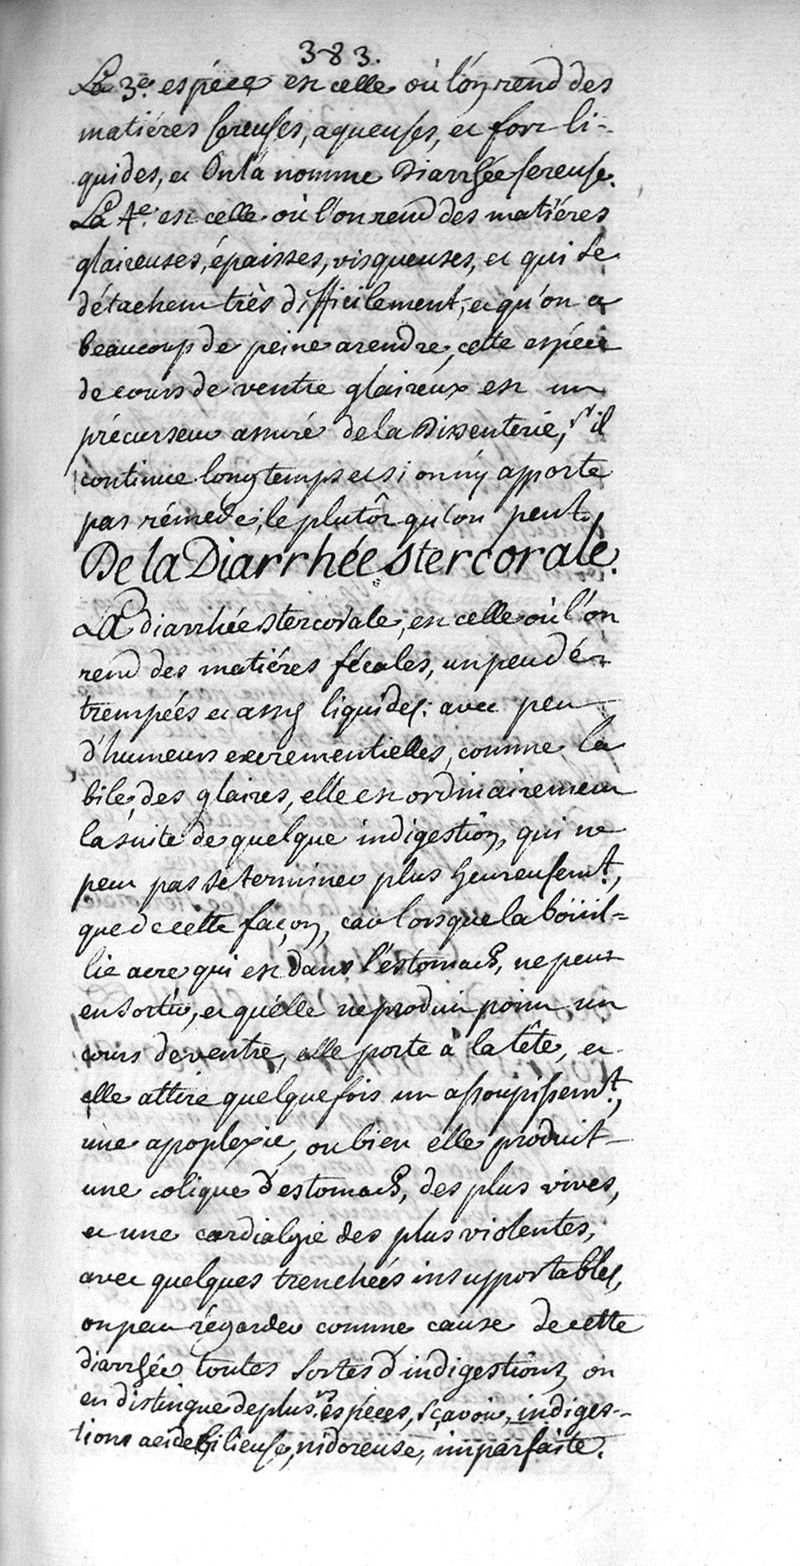 383.
La 3.e espéce est celle où l'on rend des
matiéres sereuses, aqueuses, et fort li-
quides, et On la nomme Diarrhée sereuse.
La 4.e est celle où l'on rend des matiéres
glaireuses, épaisses, visqueuses, et qui se
détachent très difficilement, et qu'on a
beaucoup de peine arendre, cette espéce
de cours de ventre glaireux est un
précurseur assuré de la Dissenterie, s'il
continue longtemps et si on n'y apporte
pas rémede, le plutôt qu'on peut.
De la Diarrhée stercorale.
La diarrhée stercorale, est celle où l'on
rend des matiéres fécales, un peu dé-
trempées et assés liquides: avec peu
d'humeurs excrementielles, comme la
bile, des glaires, elle est ordinairement
la suite de quelque indigestion, qui ne
peut pas se terminer plus heureusem.t,
que de cette façon, car lorsque la boüil=
lie acre qui est dans l'estomach, ne peut
en sortir, et qu'elle ne produit point un
cours de ventre, elle porte à la tête, et
elle attire quelque fois un assoupissem.t,
une apoplexie, ou bien elle produit
une colique d'estomach, des plus vives,
et une cardialgie des plus violentes,
avec quelques trenchées insupportables,
on peut régarder comme cause de cette
diarrhée toutes sortes d'indigestions, on
en distingue de plus.rs espéces, sçavoir, indiges-
tions acide, bilieuse, nidoreuse, imparfaite.